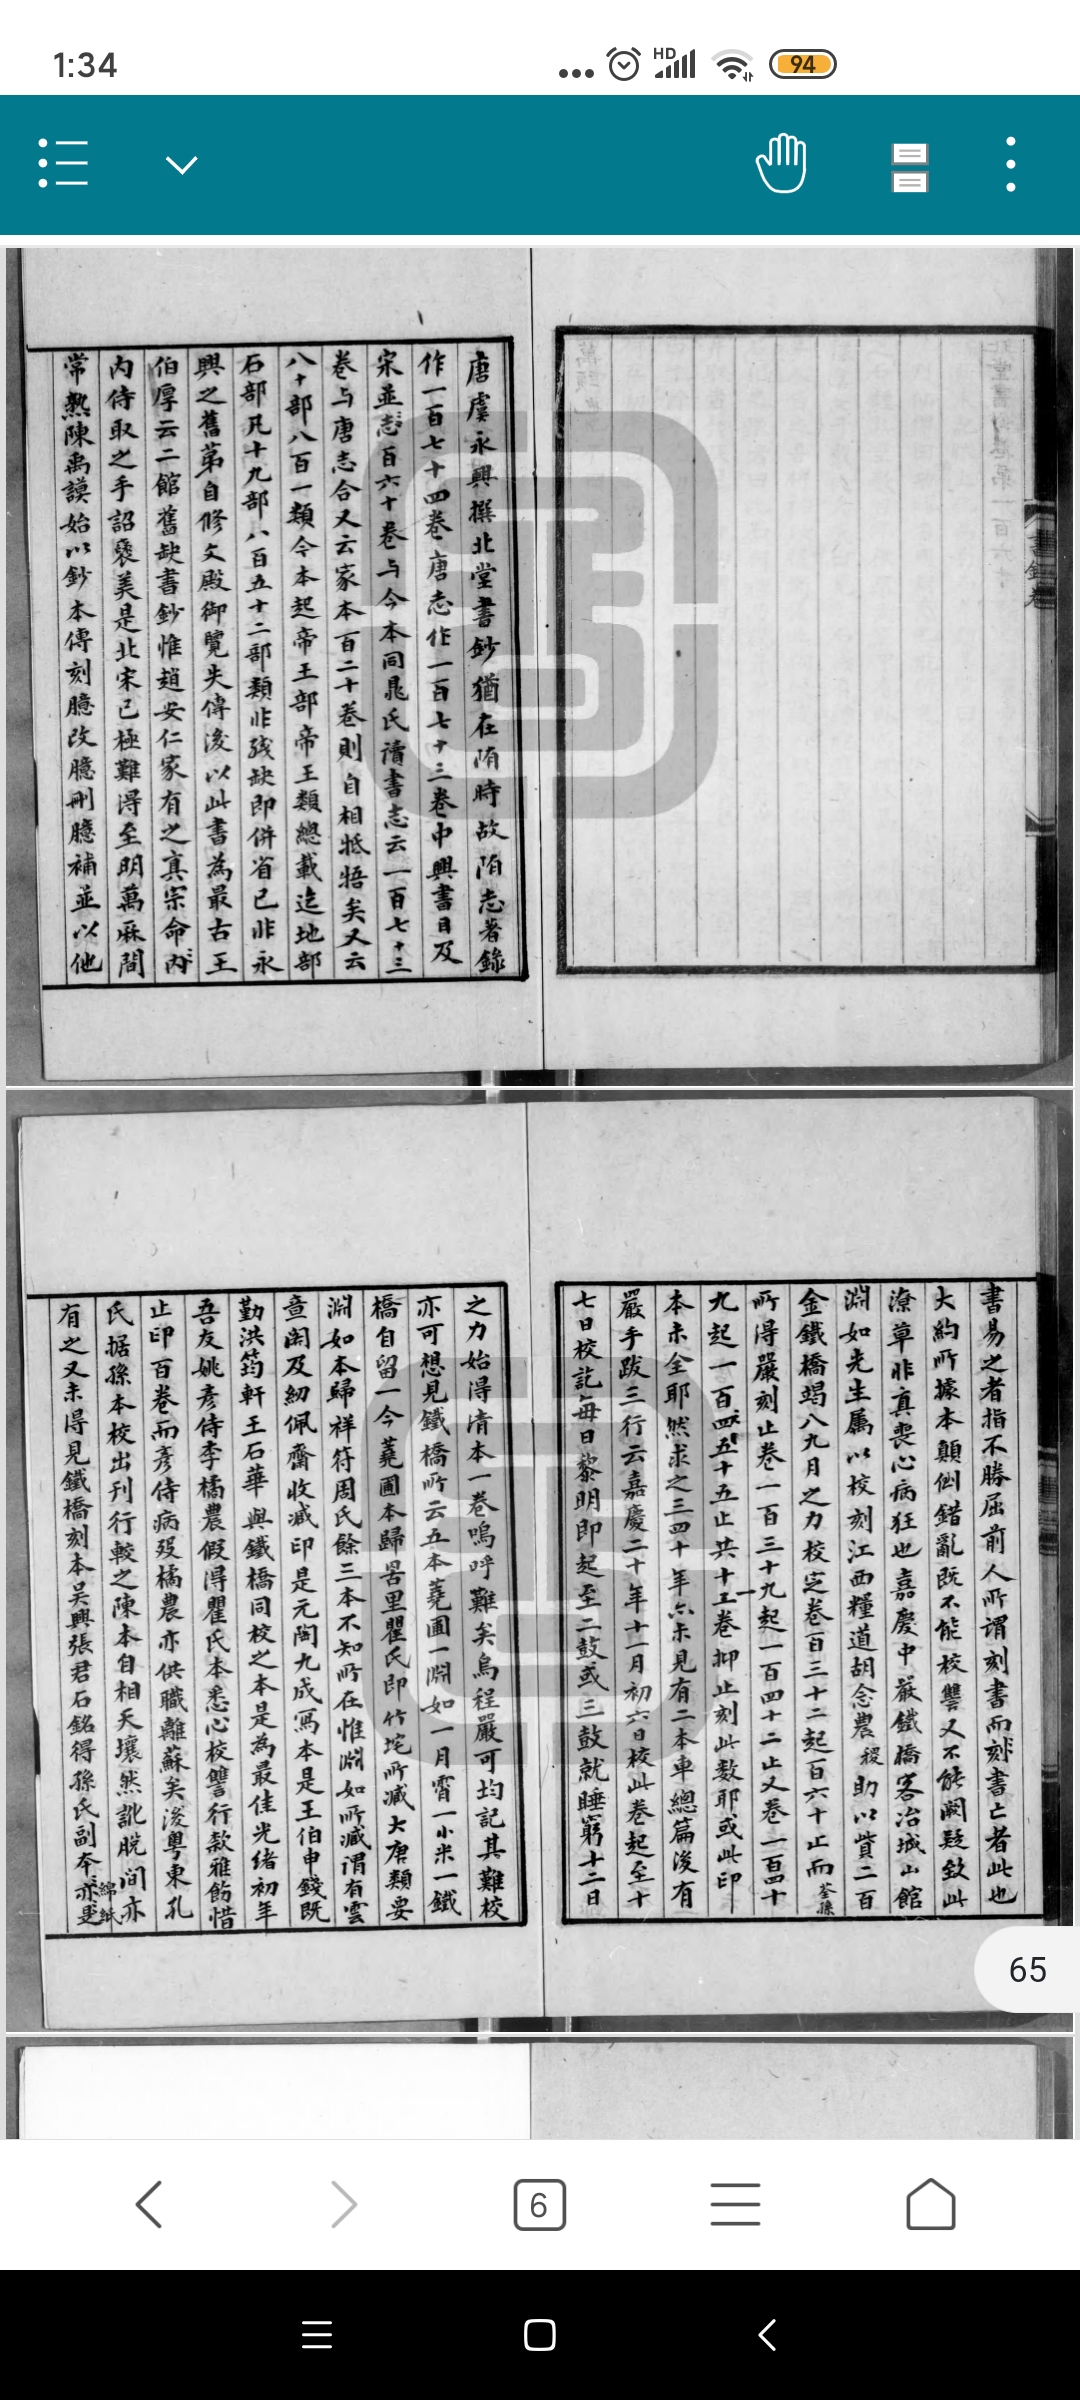 1:34
HD
94
唐虞永興撰北堂書鈔猶在隋時故隋志著錄
作一百七十四卷唐志作一百七十三卷中興書目及
宋並志百六十卷与今本同晁氏讀書志云一百七十三
卷与唐志合又云家本百二十卷則自相牴牾矣又云
八十部八百一類今本起帝王部帝王類總載迄地部
石部凡十九部八百五十二部類非殘缺即併省已非永
興之舊第自修文殿御覽失傳後以此書為最古王
伯厚云二館舊缺書鈔惟趙安仁家有之真宗命內
內侍取之手詔襃美是北宋已極難得至明萬厤間
常熟陳禹謨始以鈔本傳刻臆改臆刪臆補並以他
書易之者指不勝屈前人所謂刻書而刻書亡者此也
大約所據本顛倒錯亂既不能校讐又不能闕疑致此
潦草非真喪心病狂也嘉慶中嚴鐵橋客冶城山館
淵如先生属以校刻江西糧道胡念農稷助以貲二百
金鐵橋竭八九月之力校定卷百三十二起百六十止而荃孫
所得嚴刻止卷一百三十九起一百四十二止又卷一百四十
九起一百五十五止共十一卷抑止刻此數耶或此印
本未全耶然求之三四十年亦未見有二本車總篇後有
嚴手跋三行云嘉慶二十年十一月初六日校此卷起至十
七日校訖每日黎明即起至二鼓或三鼓就睡窮十二日
之力始得清本一卷嗚呼難矣烏程嚴可均記其難校
亦可想見鐵橋所云五本蕘圃一淵如一月霄一小米一鐵
橋自留一今蕘圃本歸罟里瞿氏即竹垞所臧大唐類要
淵如本歸祥符周氏餘三本不知所在惟淵如所臧謂有雲
章閣及紉佩齋收臧印是元陶九成寫本是王伯申錢既
勤洪筠軒王石華與鐵橋同校之本是為最佳光緒初年
吾友姚彥侍李橘農假得瞿氏本悉心校讐行款雅飭惜
止印百卷而彥侍病歿橘農亦供職離蘇矣後粵東孔
氏据孫本校出刊行較之陳本自相天壤然訛脫間亦
有之又未得見鐵橋刻本吳興張君石銘得孫氏副本亦是綿紙
65
6